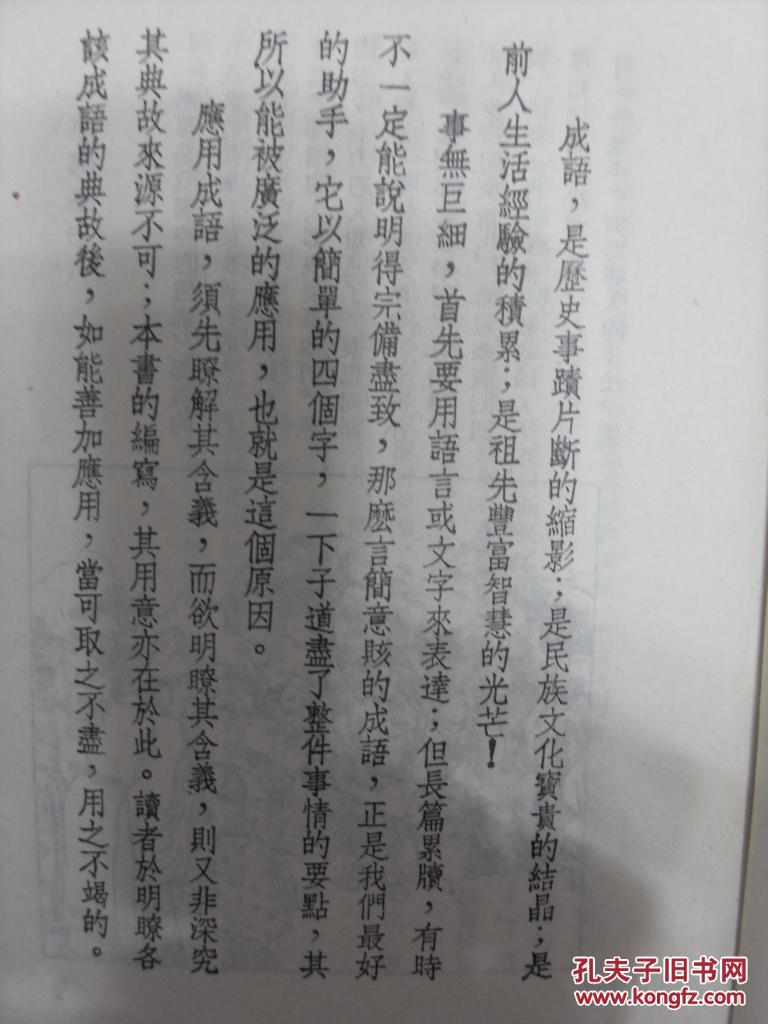 成語，是歷史事蹟片斷的縮影；是民族文化寶貴的結晶；是
前人生活經驗的積累；是祖先豐富智慧的光芒！
事無巨細，首先要用語言或文字來表達；但長篇累牘，有時
不一定能說明得完備盡致，那麽言簡意賅的成語，正是我們最好
的助手，它以簡單的四個字，一下子道盡了整件事情的要點，其
所以能被廣泛的應用，也就是這個原因。
應用成語，須先瞭解其含義，而欲明瞭其含義，則又非深究
其典故來源不可；本書的編寫，其用意亦在於此。讀者於明瞭各
該成語的典故後，如能善加應用，當可取之不盡，用之不竭的。
孔夫子旧书网
www.kongfz.com